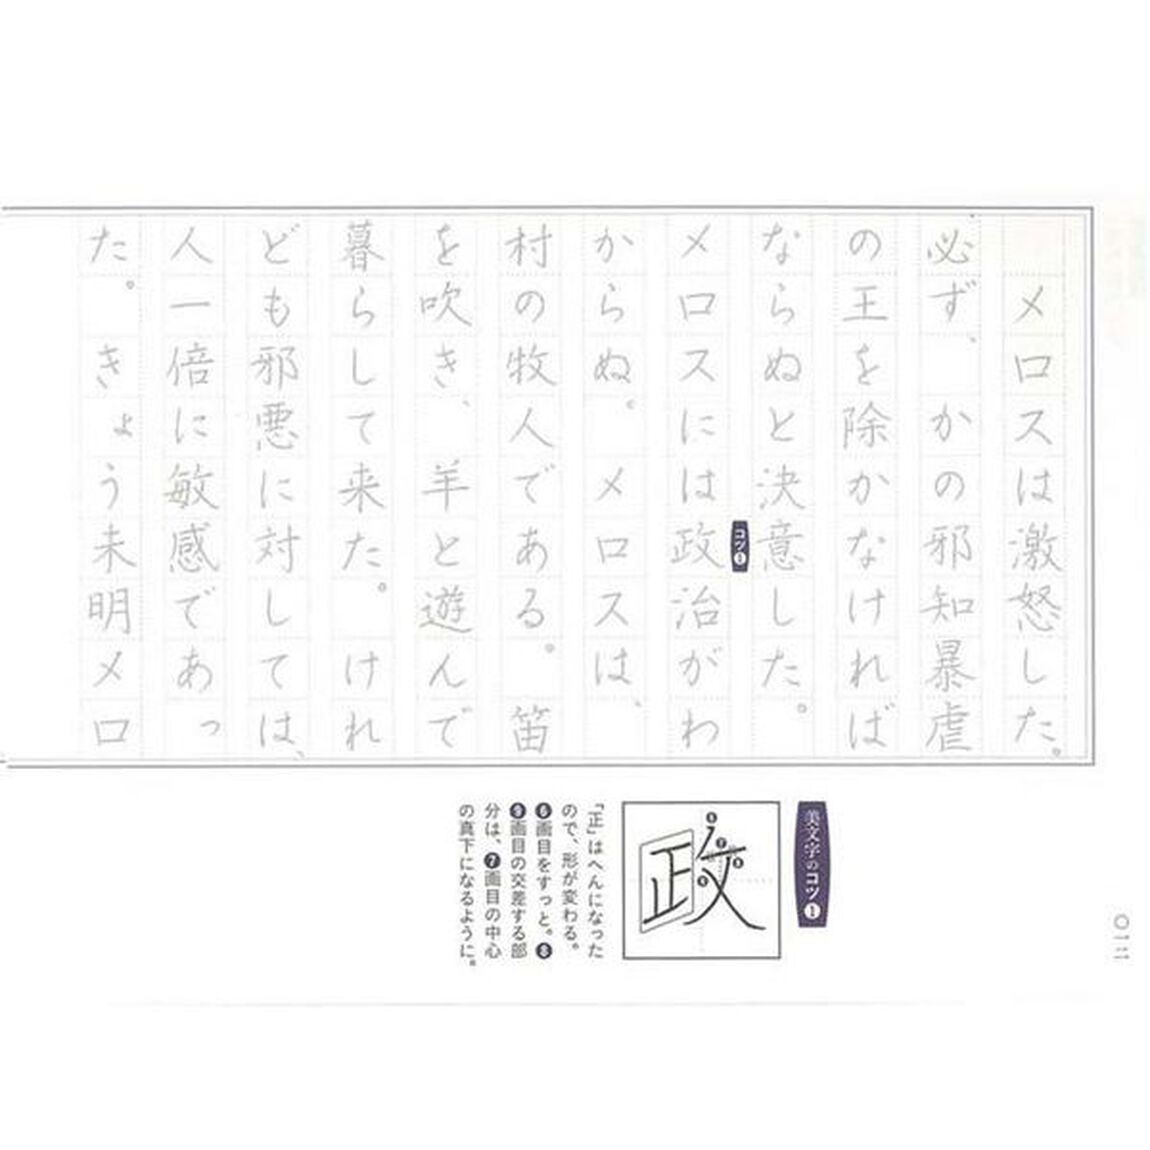 メロスは激怒した。
必ず、かの邪知暴虐
の王を除かなければ
ならぬと決意した。
メロスには政治がわ
からぬ。メロスは、
村の牧人である。笛
を吹き、羊と遊んで
暮らして来た。けれ
ども邪悪に対しては、
人一倍に敏感であっ
た。きょう未明メロ
コツ❶
美文字のコツ❶
政
「正」はへんになった
ので、形が変わる。
❻画目をすっと。❽
❾画目の交差する部
分は、❼画目の中心
の真下になるように。